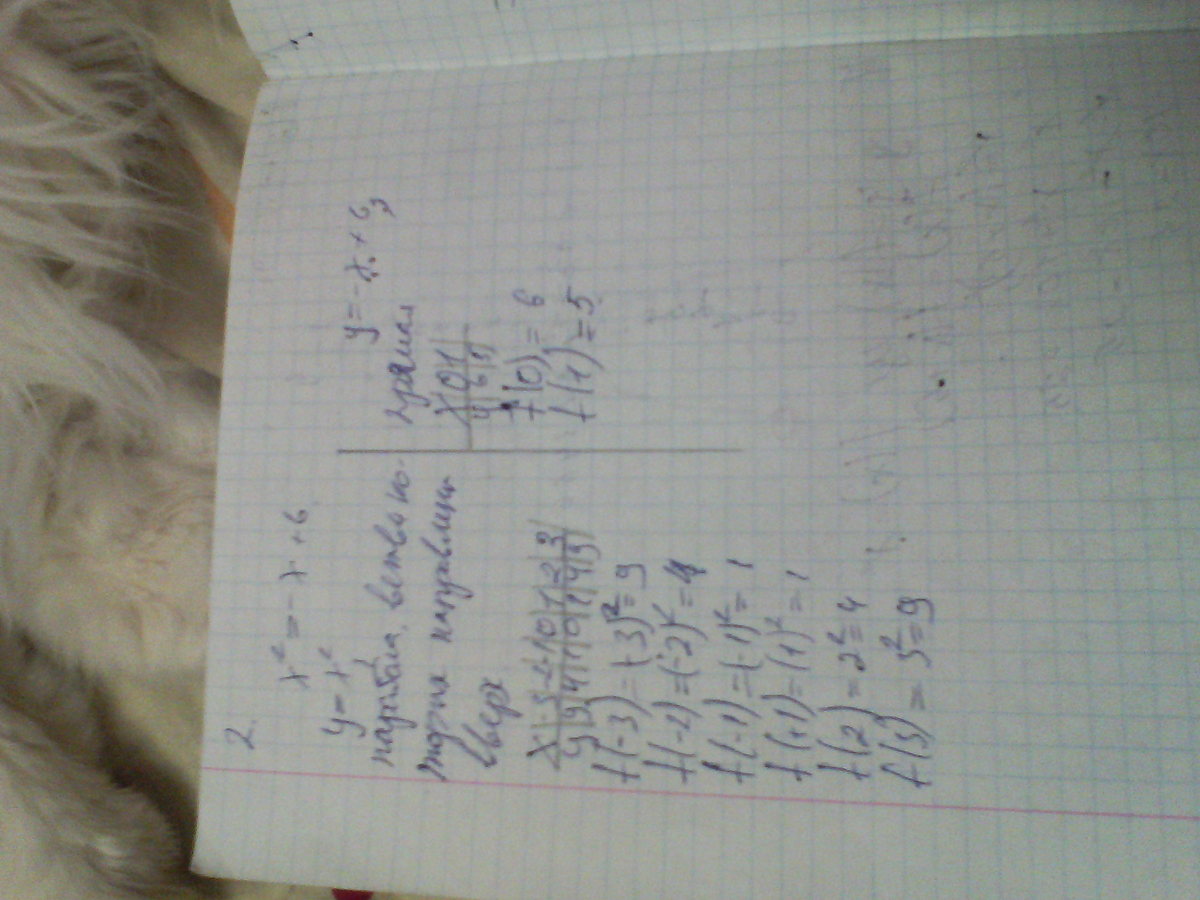 2.
x² = -x + 6
y = x²
парабола, ветви ко-
торой направлены
вверх
x | -3 | -2 | -1 | 0 | 1 | 2 | 3
y | 9 | 4 | 1 | 0 | 1 | 4 | 9
f(-3) = (-3)² = 9
f(-2) = (-2)² = 4
f(-1) = (-1)² = 1
f(+1) = (1)² = 1
f(2) = 2² = 4
f(3) = 3² = 9
y = -x + 6,
прямая
x | 0 | 1
y | 6 | 5
f(0) = 6
f(1) = 5